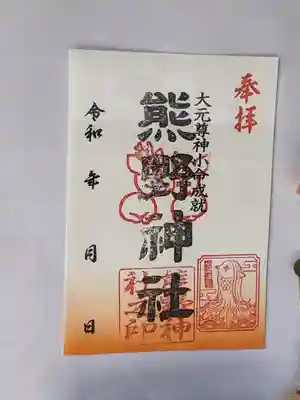 奉拝
大元尊神小命成就
熊野神社
令和 年 月 日